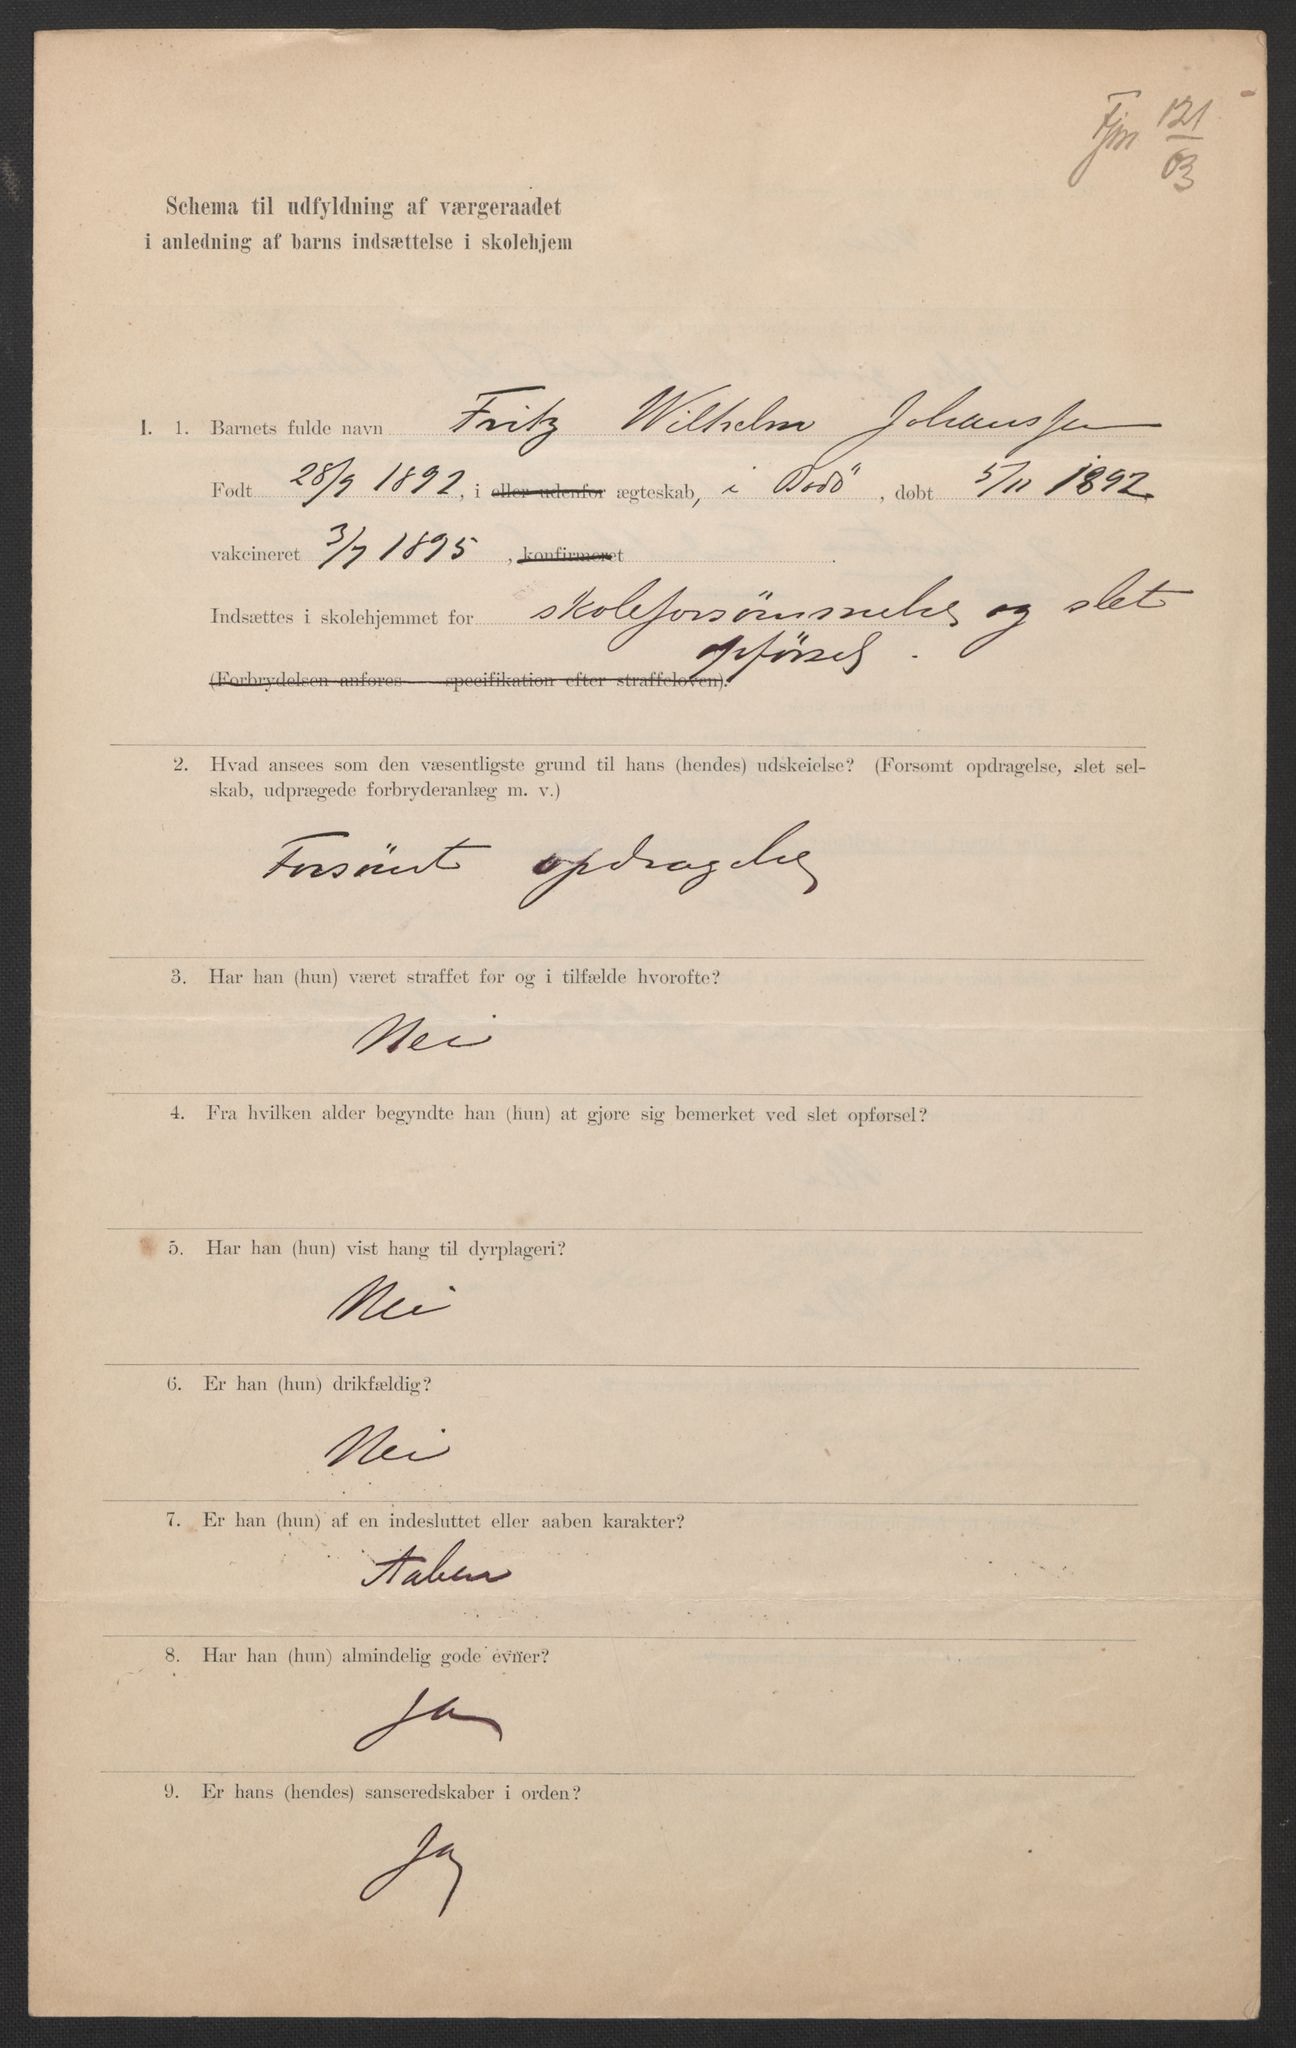 Fjm 121/03
Schema til udfyldning af værgeraadet
i anledning af barns indsættelse i skolehjem
I. 1. Barnets fulde navn Fritz Wilhelm Johanssen
Født 28/9 1892, i eller udenfor ægteskab, i Bodö, døbt 5/11 1892,
vakcineret 3/7 1895, konfirmeret
Indsættes i skolehjemmet for skoleforsømmelse og slet
opførsel.
(Forbrydelsen anføres — specifikation efter straffeloven).
2. Hvad ansees som den væsentligste grund til hans (hendes) udskeielse? (Forsømt opdragelse, slet sel-
skab, udprægede forbryderanlæg m. v.)
Forsömt opdragelse
3. Har han (hun) været straffet før og i tilfælde hvorofte?
Nei
4. Fra hvilken alder begyndte han (hun) at gjøre sig bemerket ved slet opførsel?
5. Har han (hun) vist hang til dyrplageri?
Nei
6. Er han (hun) drikfældig?
Nei
7. Er han (hun) af en indesluttet eller aaben karakter?
Aaben
8. Har han (hun) almindelig gode evner?
Ja
9. Er hans (hendes) sanseredskaber i orden?
Ja